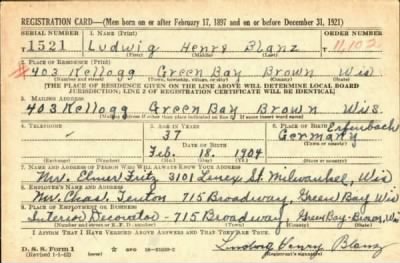 REGISTRATION CARD—(Men born on or after February 17, 1897 and on or before December 31, 1921)
SERIAL NUMBER 1. NAME (Print) ORDER NUMBER
T 1521 Ludwig Henry Blanz 11,102
(First) (Middle) (Last)
2. PLACE OF RESIDENCE (Print)
403 Kellogg Green Bay Brown Wis
(Number and street) (Town, township, village, or city) (County) (State)
[THE PLACE OF RESIDENCE GIVEN ON THE LINE ABOVE WILL DETERMINE LOCAL BOARD
JURISDICTION; LINE 2 OF REGISTRATION CERTIFICATE WILL BE IDENTICAL]
3. MAILING ADDRESS
403 Kellogg Green Bay Brown Wis.
[Mailing address if other than place indicated on line 2. If same insert word same]
4. TELEPHONE 5. AGE IN YEARS 6. PLACE OF BIRTH
- 37 Erfenbach
DATE OF BIRTH
Feb. 18, 1904 Germany
(Exchange) (Number) (Mo.) (Day) (Yr.) (State or country)
7. NAME AND ADDRESS OF PERSON WHO WILL ALWAYS KNOW YOUR ADDRESS
Mr. Elmer Fritz 3101 St. Milwaukee, Wis
8. EMPLOYER'S NAME AND ADDRESS
Mr. Chas. Tenton 715 Broadway, Green Bay Wis
9. PLACE OF EMPLOYMENT OR BUSINESS
Interior Decorator - 715 Broadway, Green Bay - Brown, Wis
(Number and street or R. F. D. number) (Town) (County) (State)
I AFFIRM THAT I HAVE VERIFIED ABOVE ANSWERS AND THAT THEY ARE TRUE.
D. S. S. Form 1
(Revised 1-1-42) (over) Ludwig Henry Blanz
(Registrant's signature)